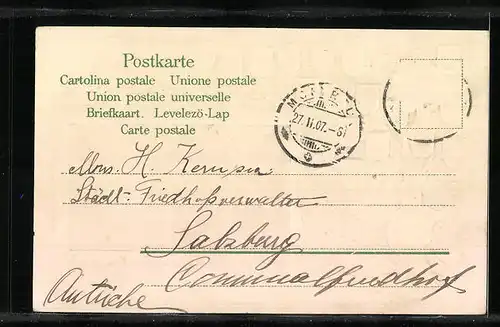 Postkarte
Cartolina postale Unione postale
Union postale universelle
Briefkaart. Levelező-Lap
Carte postale
27.II.07.-6
Mons. H.
Städt. Friedhofsverwalter
Salzburg
Comunalfriedhof
Autriche